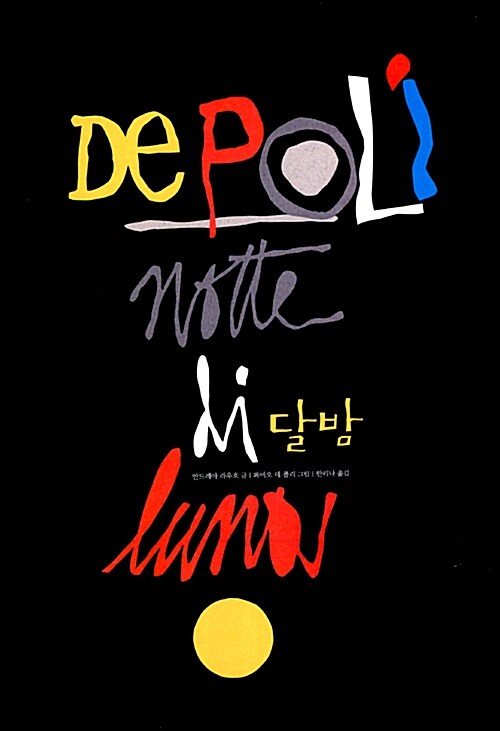 DePOLi
notte
di 달밤
안드레아 라우흐 글 | 파비오 데 폴리 그림 | 한리나 옮김
luna